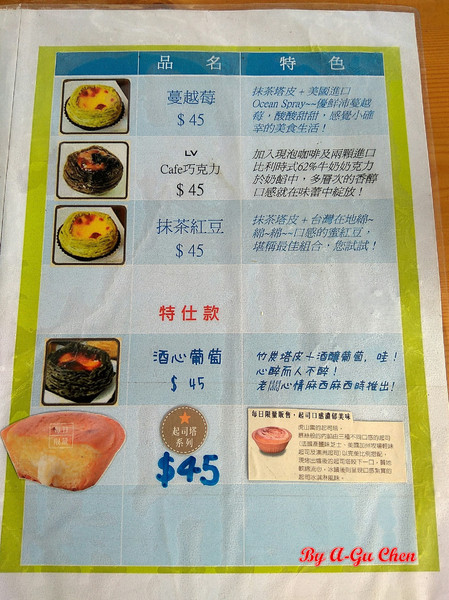 品 名
特 色
蔓越莓
$ 45
抹茶塔皮 + 美國進口
Ocean Spray~~優鮮沛蔓越
莓，酸酸甜甜，感覺小確
幸的美食生活！
LV
Cafe巧克力
$ 45
加入現泡咖啡及兩顆進口
比利時式62%牛奶奶克力
於奶餡中，多層次的香醇
口感就在味蕾中綻放！
抹茶紅豆
$ 45
抹茶塔皮 + 台灣在地綿~
綿~綿~~口感的蜜紅豆，
堪稱最佳組合，您試試！
特仕款
酒心葡萄
$ 45
竹炭塔皮＋酒釀葡萄，哇！
心醉而人不醉！
老闆心情麻西麻西時推出！
每日
限量
起司塔
系列
$45
每日限量販售，起司口感濃郁美味
By A-Gu Chen